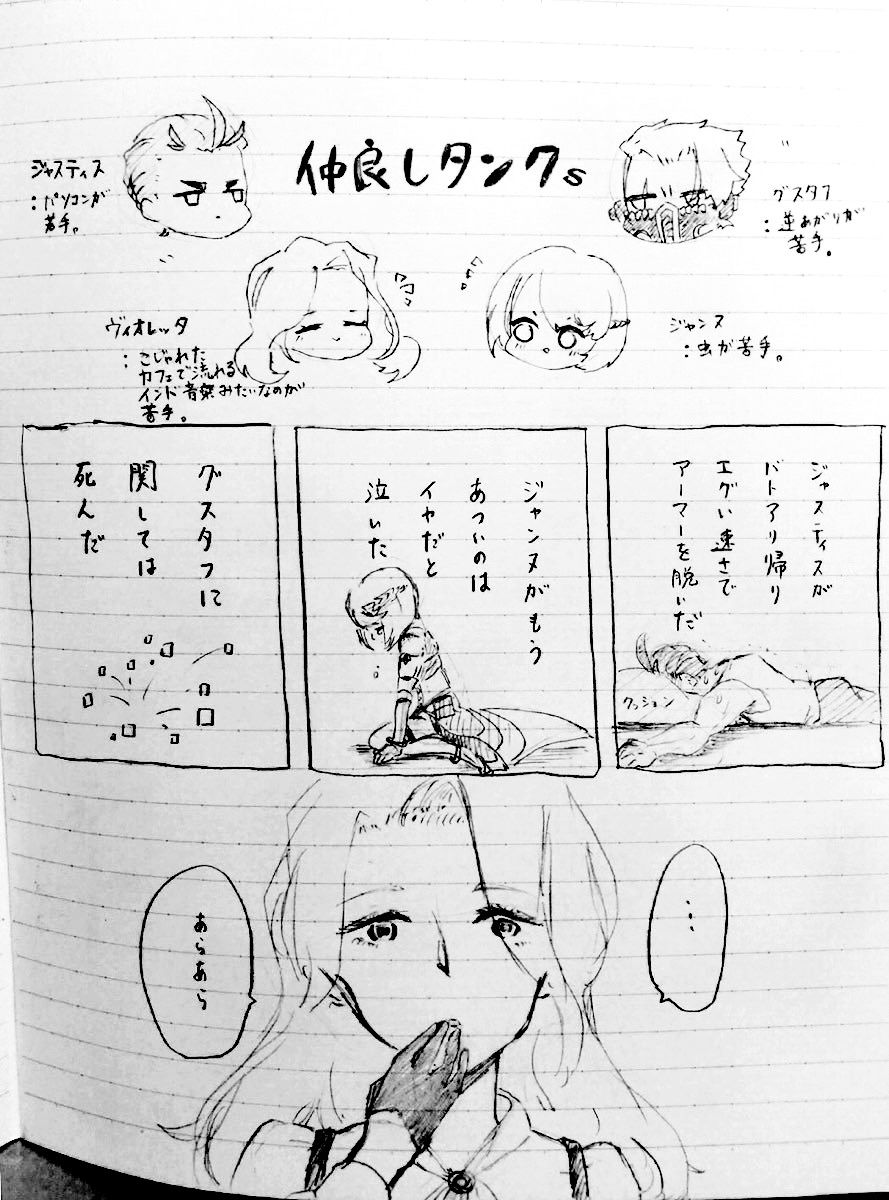 仲良しタンクs
ジャスティス
:パソコンが
苦手。
グスタフ
:逆あがりが
苦手。
ヴィオレッタ
:こじゃれた
カフェで流れる
インド音楽みたいなのが
苦手。
ジャンヌ
:虫が苦手。
ジャスティスが
バトアリ帰り
エグい速さで
アーマーを脱いだ
クッション
ジャンヌがもう
あついのは
イヤだと
泣いた
グスタフに
関しては
死んだ
…
あらあら